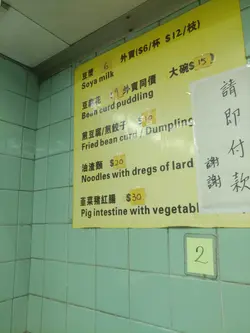 豆漿 6 外賣($6/杯 $12/枝)
Soya milk
豆腐花 外賣同價 大碗$
Bean curd pudding
煎豆腐/煎餃子 $
Fried bean curd / Dumpling
油渣麵 $30
Noodles with dregs of lard
韮菜豬紅腸 $30
Pig intestine with vegetabl
請即付款
謝謝
2